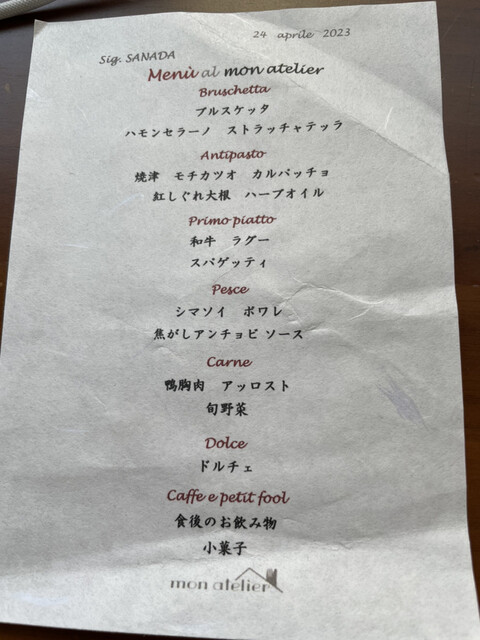 24 aprile 2023
Sig. SANADA
Menù al mon atelier
Bruschetta
ブルスケッタ
ハモンセラーノ　ストラッチャテッラ
Antipasto
焼津　モチカツオ　カルパッチョ
紅しぐれ大根　ハーブオイル
Primo piatto
和牛　ラグー
スパゲッティ
Pesce
シマソイ　ポワレ
焦がしアンチョビ ソース
Carne
鴨胸肉　アッロスト
旬野菜
Dolce
ドルチェ
Caffe e petit fool
食後のお飲み物
小菓子
mon atelier